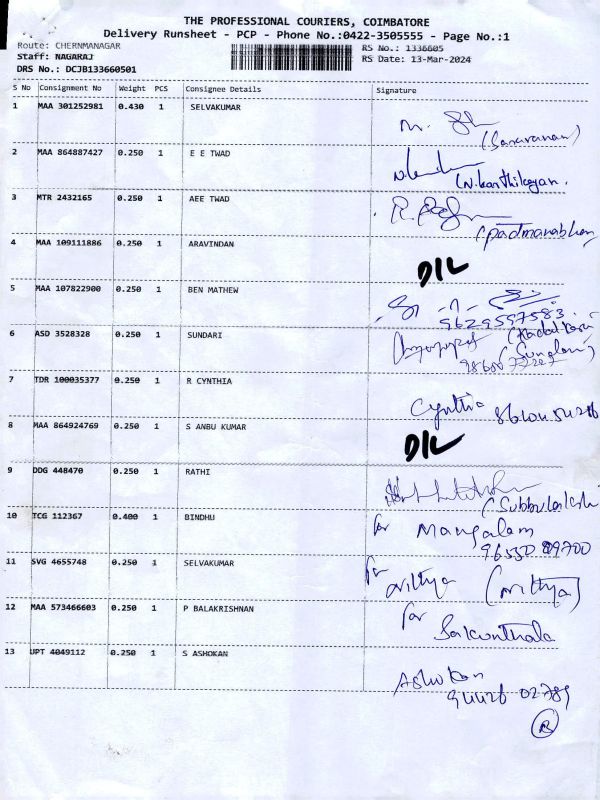 THE PROFESSIONAL COURIERS, COIMBATORE
Delivery Runsheet - PCP - Phone No.:0422-3505555 - Page No.:1
Route: CHERNMANAGAR
RS No.: 1336605
Staff: NAGARAJ
RS Date: 13-Mar-2024
DRS No.: DCJB133660501
S No Consignment No Weight PCS Consignee Details Signature
1 MAA 301252981 0.430 1 SELVAKUMAR
(Saravanan)
2 MAA 864887427 0.250 1 E E TWAD
(N.karthikeyan.
3 MTR 2432165 0.250 1 AEE TWAD
(Padmanabhan
4 MAA 109111886 0.250 1 ARAVINDAN
D/L
5 MAA 107822900 0.250 1 BEN MATHEW
9629597583.
6 ASD 3528328 0.250 1 SUNDARI
7 TDR 100035377 0.250 1 R CYNTHIA
Cynthia
8 MAA 864924769 0.250 1 S ANBU KUMAR
D/L
9 DDG 448470 0.250 1 RATHI
10 TCG 112367 0.400 1 BINDHU
for Mangalam
11 SVG 4655748 0.250 1 SELVAKUMAR
for Nithya (Nithya)
12 MAA 573466603 0.250 1 P BALAKRISHNAN
for Sakunthala
13 UPT 4049112 0.250 1 S ASHOKAN
Ashokan
94426 02789